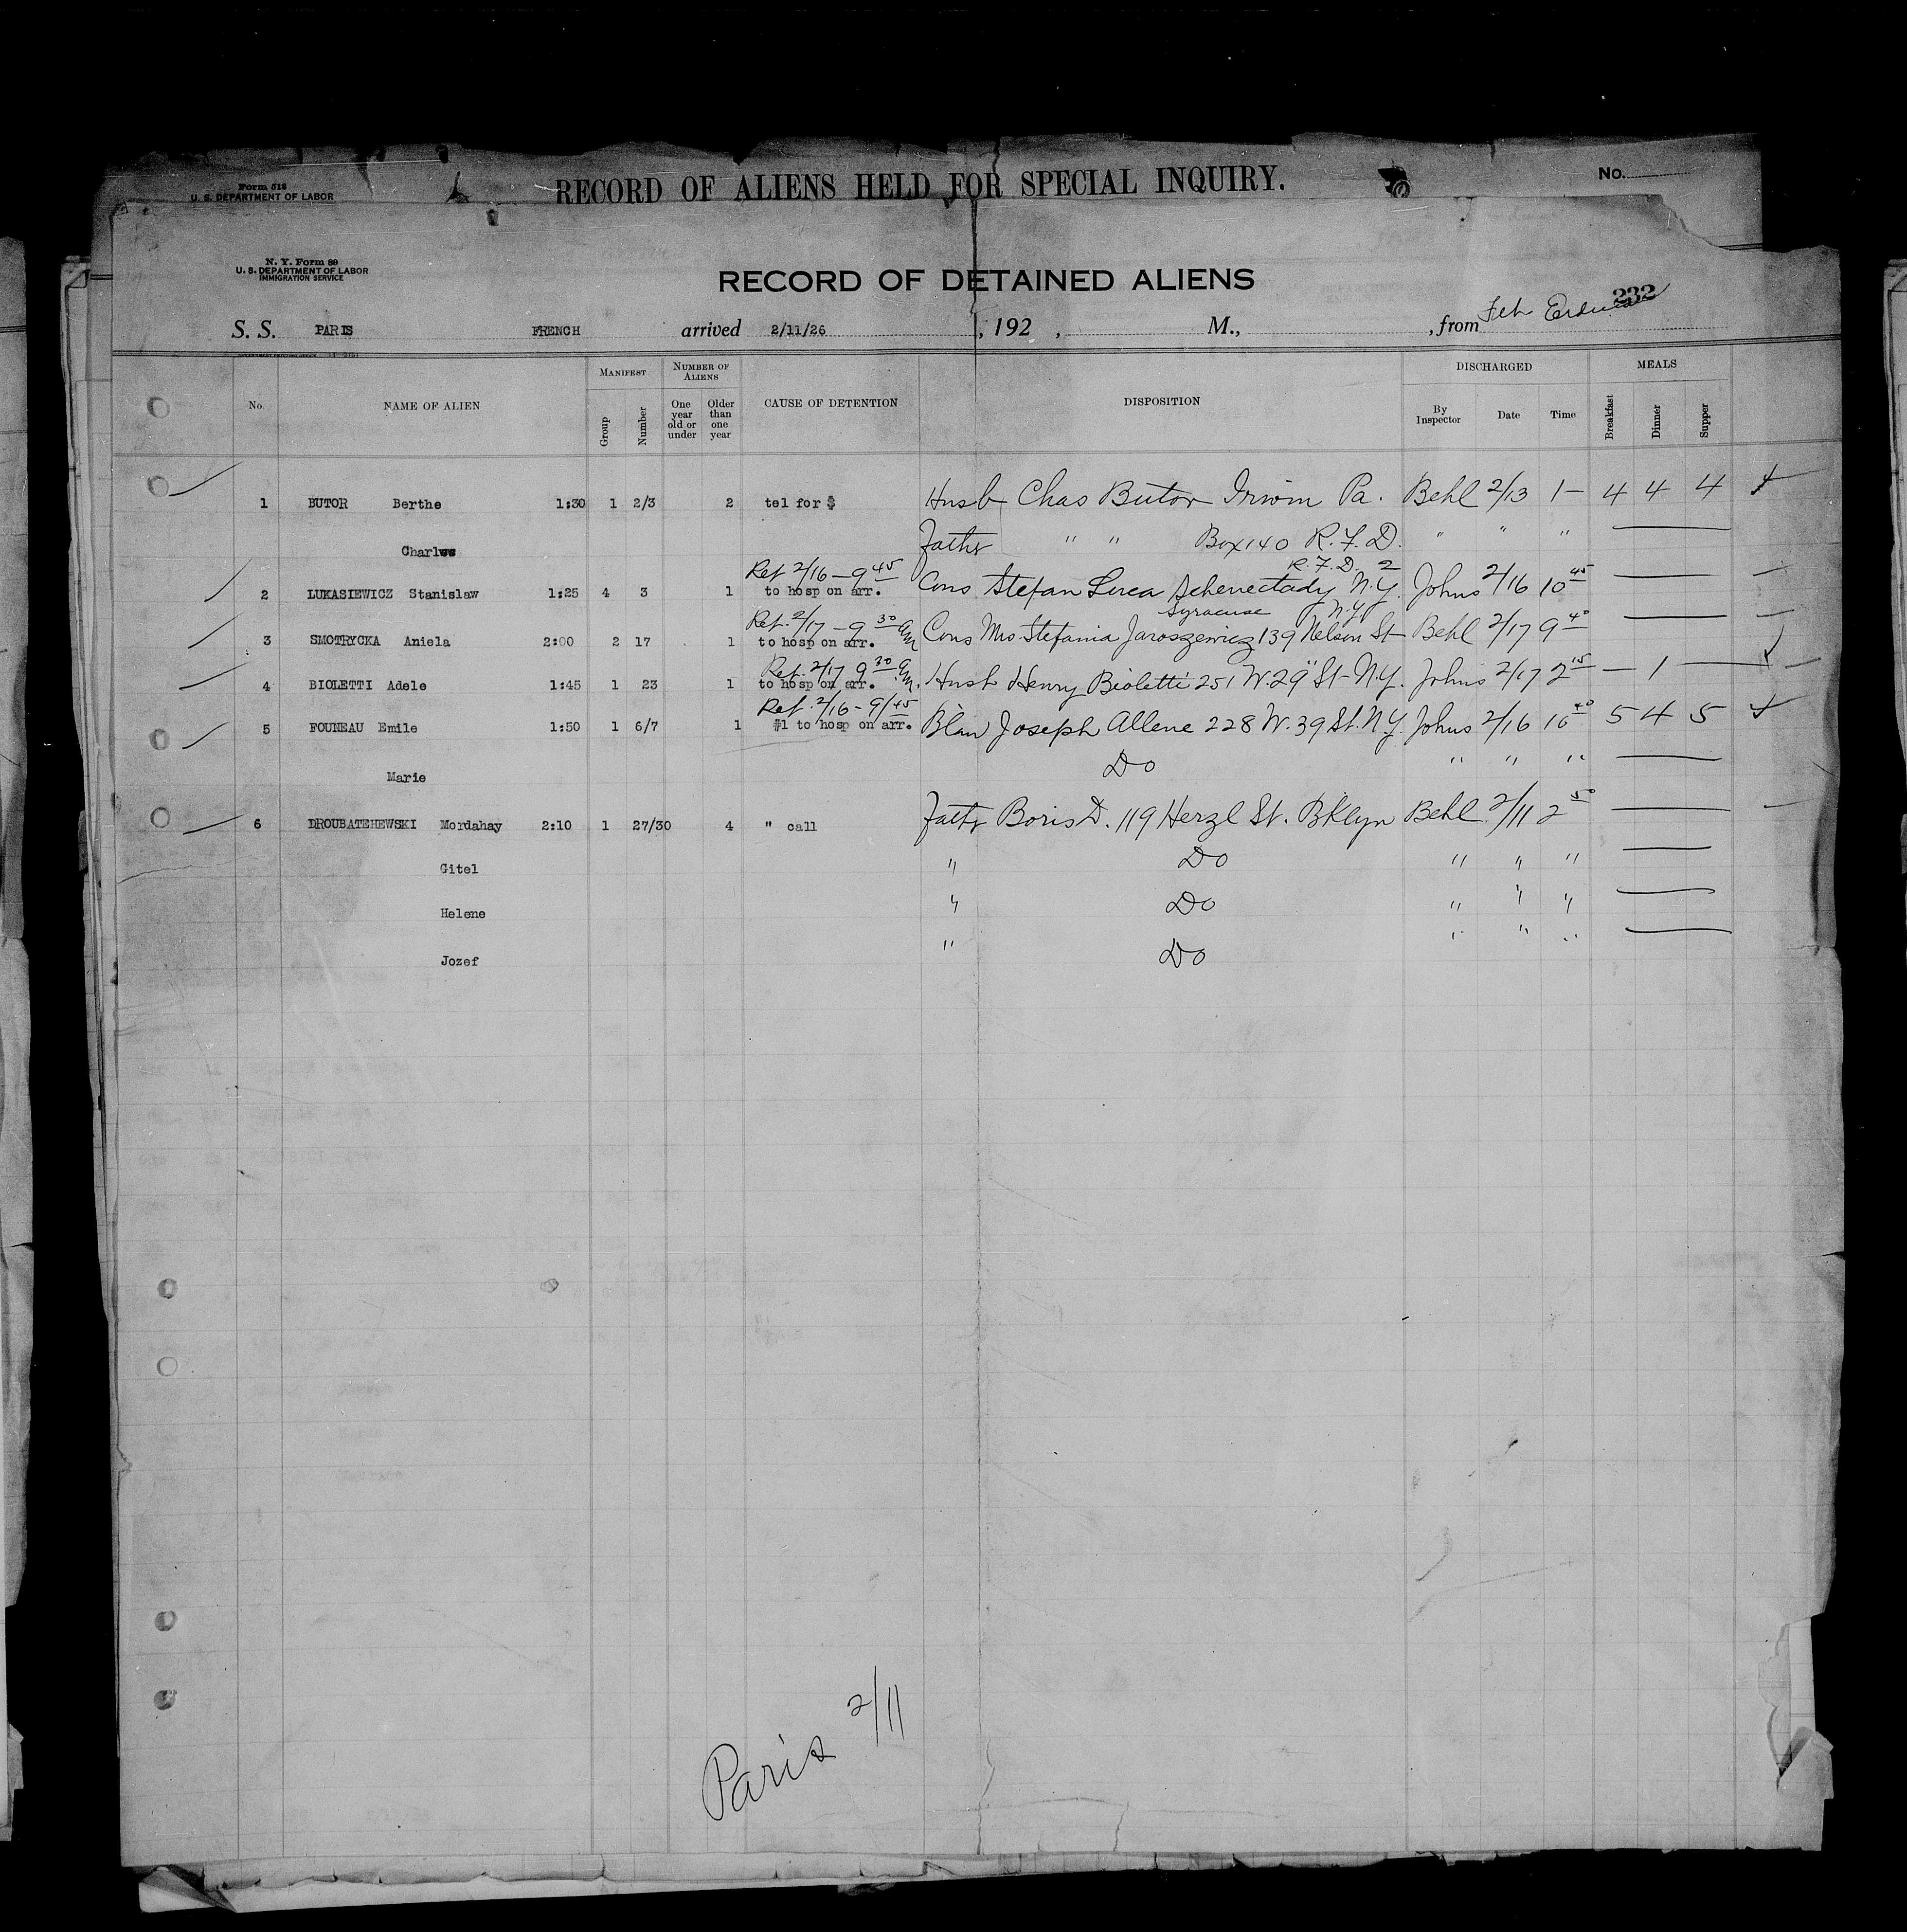 Form 518
U. S. DEPARTMENT OF LABOR
RECORD OF ALIENS HELD FOR SPECIAL INQUIRY.
No.
N. Y. Form 89
U. S. DEPARTMENT OF LABOR
IMMIGRATION SERVICE
RECORD OF DETAINED ALIENS
232
S. S. PARIS FRENCH arrived 2/11/26 , 192 , M., , from
No. NAME OF ALIEN MANIFEST Group Number NUMBER OF ALIENS One year old or under Older than one year CAUSE OF DETENTION DISPOSITION DISCHARGED By Inspector Date Time MEALS Breakfast Dinner Supper
1 BUTOR Berthe 1:30 1 2/3 2 tel for $ Husb Chas Butor Irwin Pa. Behl 2/13 1- 4 4 4
Charles Father " " Box 140 R.F.D. " " "
Ret 2/16 - 9 45 R.F.D. 2
2 LUKASIEWICZ Stanislaw 1:25 4 3 1 to hosp on arr. Cons Stefan Schenectady N.Y. Johns 2/16 10 45
Ret. 2/17 - 9 30 am Syracuse N.Y.
3 SMOTRYCKA Aniela 2:00 2 17 1 to hosp on arr. Cons Mrs Stefania Jaroszewicz 139 Nelson St Behl 2/17 9 40
Ret. 2/17 9 30 am.
4 BIOLETTI Adele 1:45 1 23 1 to hosp on arr. Husb Henry Bioletti 251 W. 29" St N.Y. Johns 2/17 2 15 — 1 —
Ret. 2/16 - 9/45
5 FOUNEAU Emile 1:50 1 6/7 1 #1 to hosp on arr. Joseph Allene 228 W. 39 St. N.Y. Johns 2/16 10 40 5 4 5
Marie Do " " "
6 DROUBATEHEWSKI Mordahay 2:10 1 27/30 4 " call Father Boris D. 119 Herzl St. Bklyn Behl 2/11 2 50
Gitel " Do " " "
Helene " Do " " "
Jozef " Do " " "
Paris 2/11